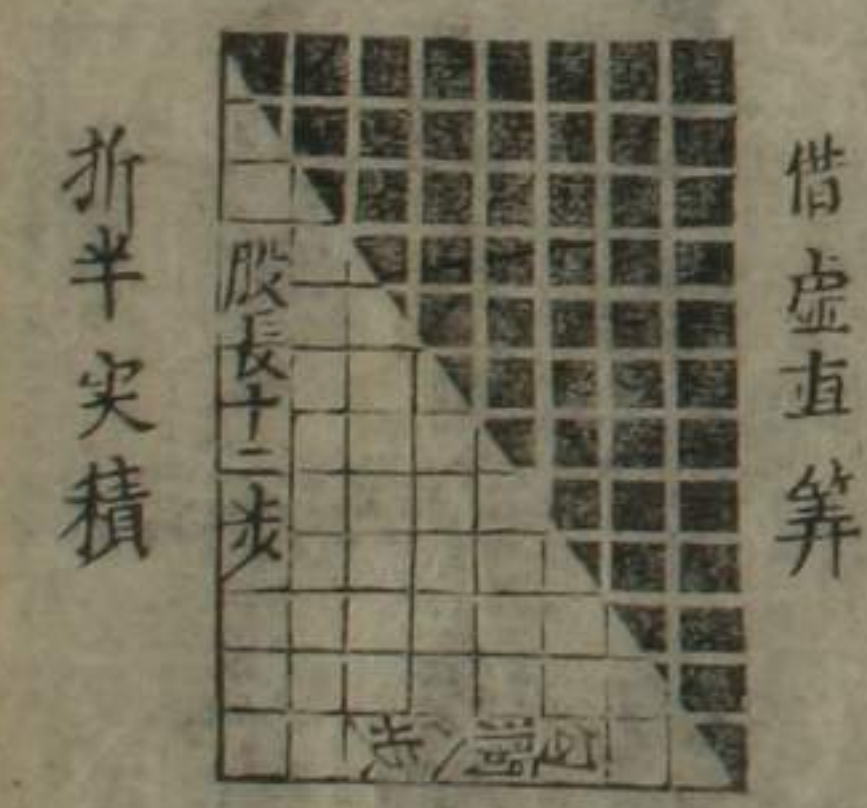 借虚直筭
股長十二步
勾濶八步
折半实積